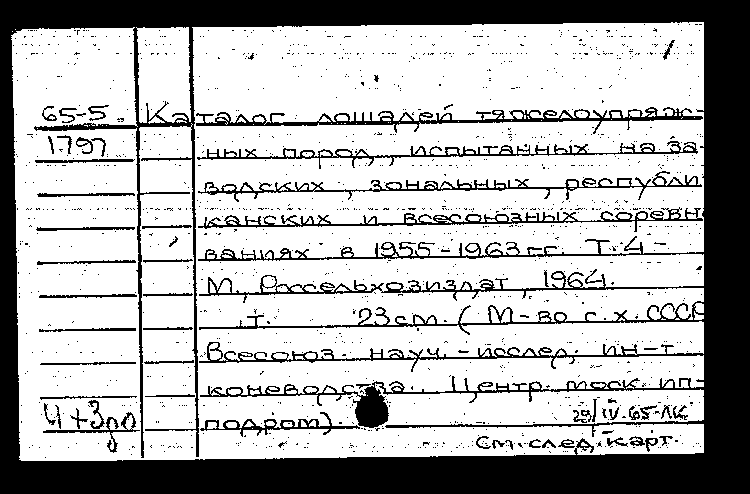 65-5. Каталог лошадей тяжелоупряж-
1797 ных пород, испытанных на за-
водских, зональных, республи
канских и всесоюзных соревно
ваниях в 1955-1963 гг. Т. 4-
М., Россельхозиздат, 1964.
т. 23 см. (М-во с.х. СССР
Всесоюз. науч.-исслед. ин-т
коневодства. Центр. моск. ип-
подром).
29/IV.65-ЛК
См. след. карт.